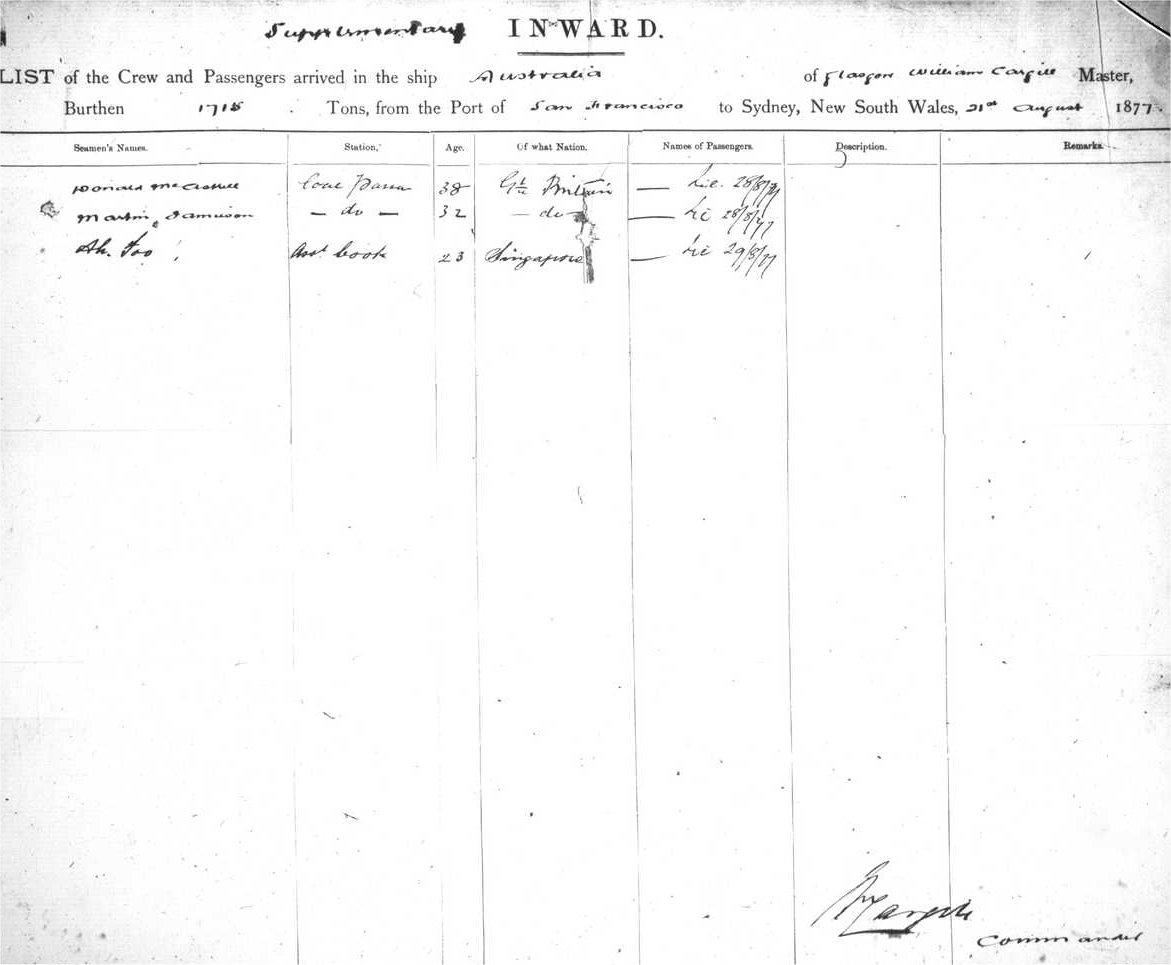 Supplementary INWARD.
LIST of the Crew and Passengers arrived in the ship Australia of Glasgow William Cargill Master,
Burthen 1715 Tons, from the Port of San Francisco to Sydney, New South Wales, 21st August 1877.
Seamen's Names. Station. Age. Of what Nation. Names of Passengers. Description. Remarks.
Donald McCaskill Coal Passer 38 Gt Britain — Lic. 28/8/77
Martin Jamieson — do — 32 — do — — Lic 28/8/77
Ah. Foo Asst Cook 23 Singapore — Lic 29/8/77
Wm Cargill
Commander